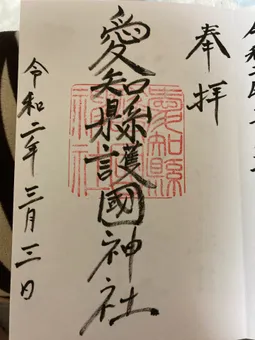 奉拝
愛知縣護國神社
令和二年三月三日
愛知縣
神社